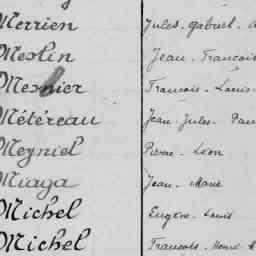 Merrien Jules-Gabriel-
Meslin Jean-François
Mesnier François-Louis-
Métereau Jean-Jules-
Meyniel Pierre-Léon
Miaga Jean-Marie
Michel Eugène-Louis
Michel François-Henri-